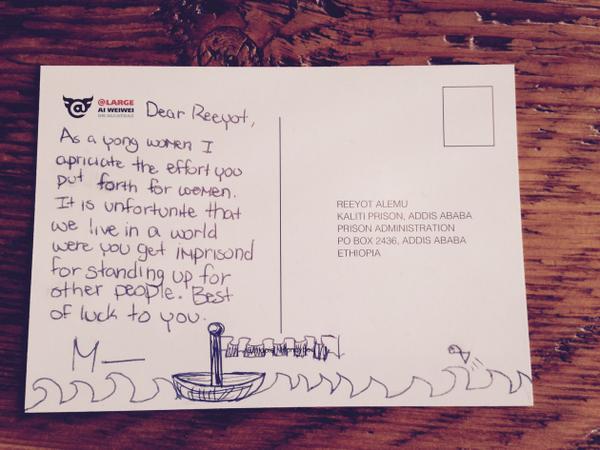 @LARGE
AI WEIWEI
ON ALCATRAZ
Dear Reeyot,
As a yong women I
apriciate the effort you
put forth for women.
It is unfortunite that
we live in a world
were you get imprisond
for standing up for
other people. Best
of luck to you.
M
REEYOT ALEMU
KALITI PRISON, ADDIS ABABA
PRISON ADMINISTRATION
PO BOX 2436, ADDIS ABABA
ETHIOPIA